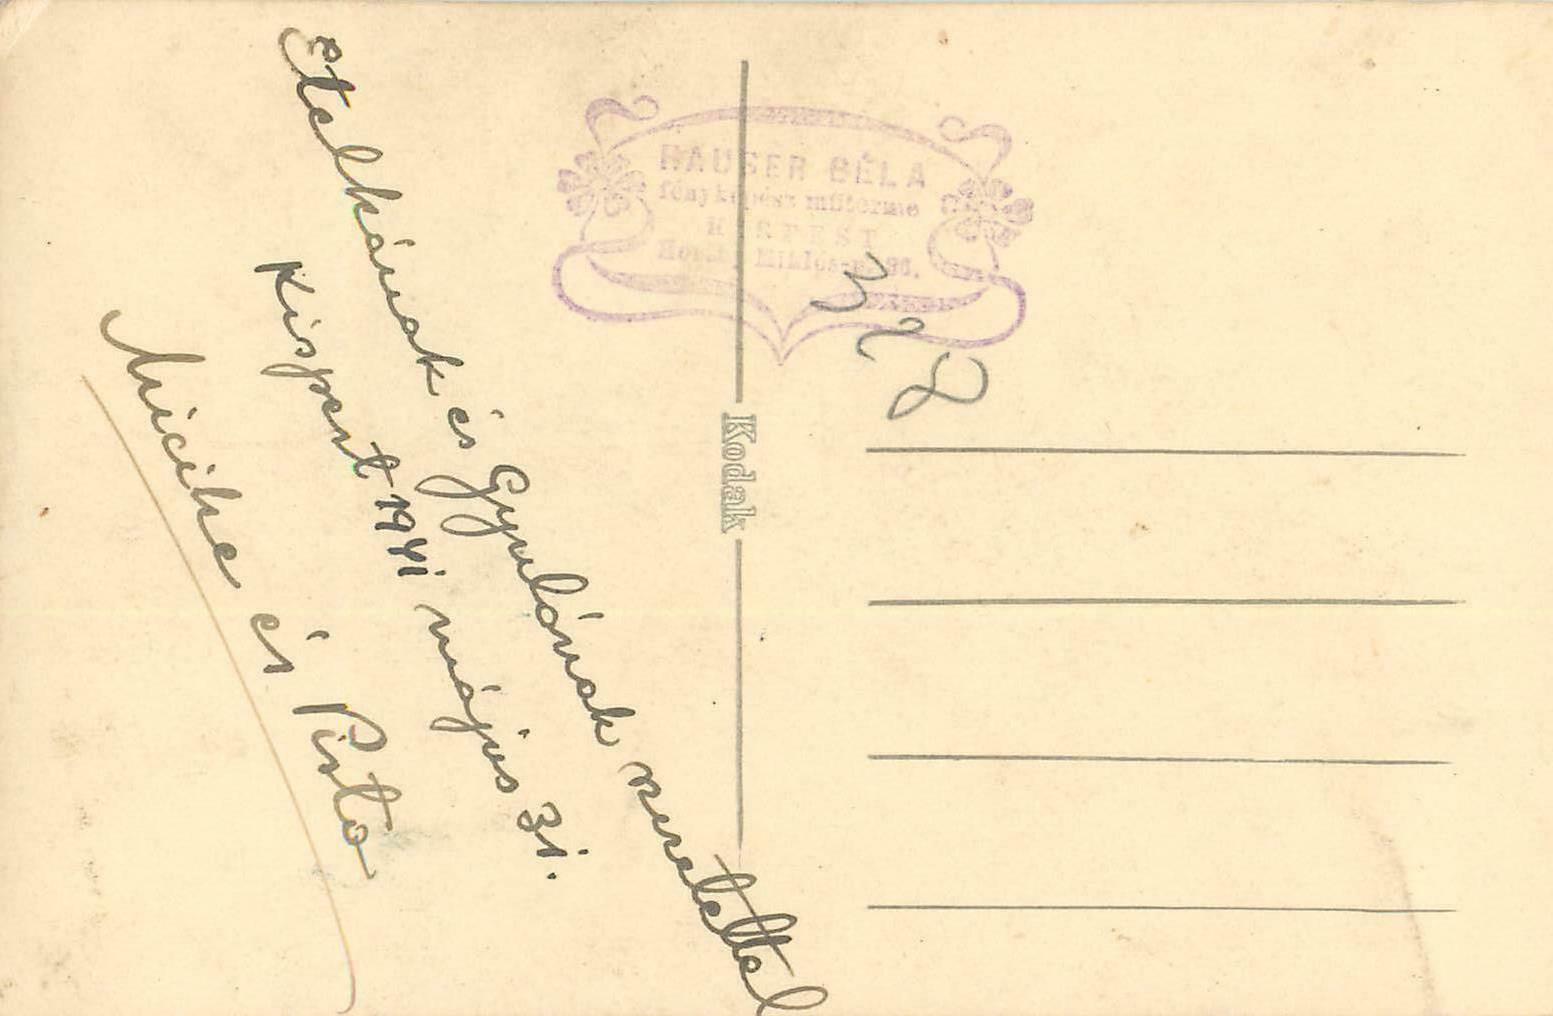 Etelkának és Gyulának szeretettel
Kispest 1941 május 31.
Micike és Pista
HAUSER BÉLA
fényképész műterme
KISPEST
Horthy Miklós-u. 96.
Kodak